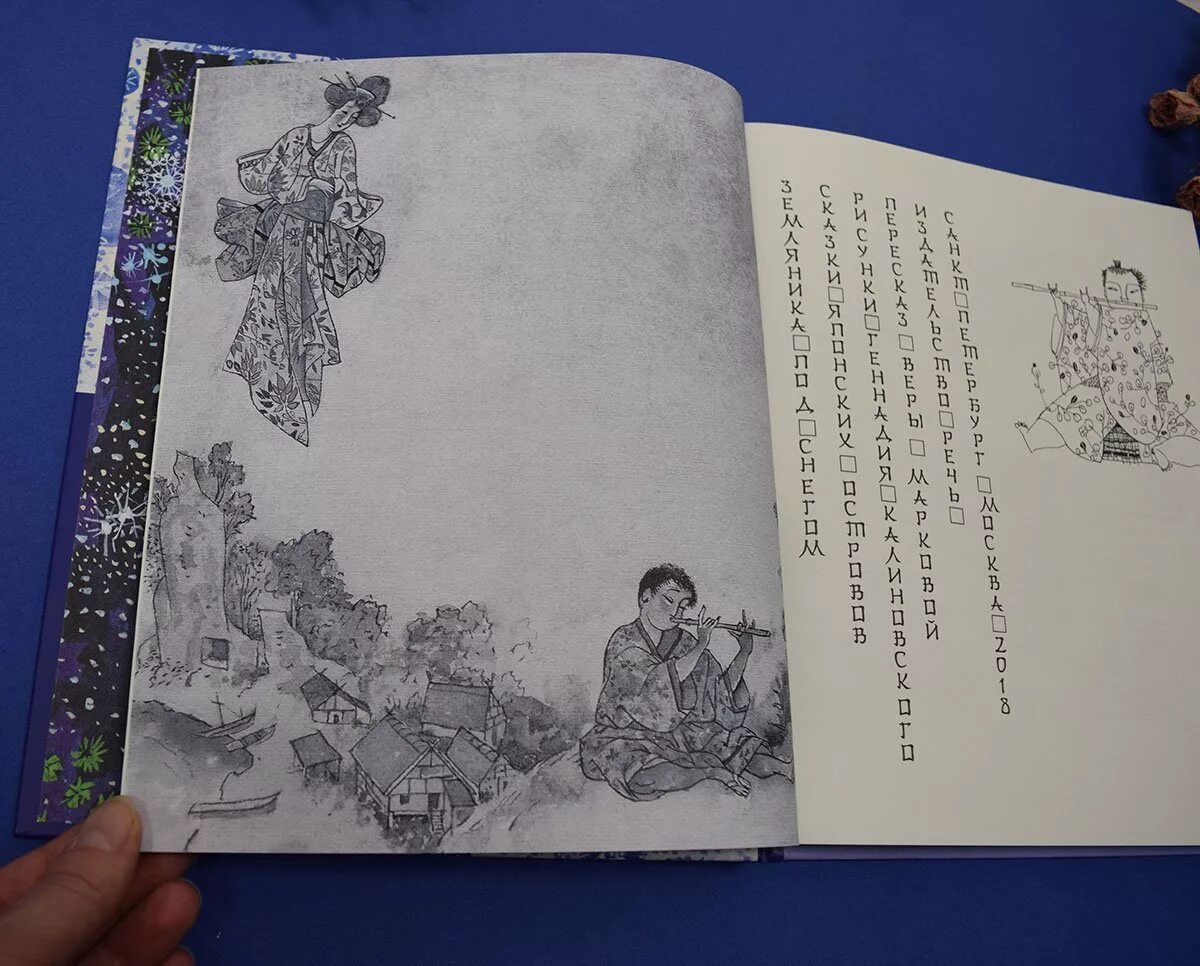 ЗЕМЛЯНИКА□ПОД□СНЕГОМ
СКАЗКИ□ЯПОНСКИХ□ОСТРОВОВ
РИСУНКИ□ГЕННАДИЯ□КАЛИНОВСКОГО
ПЕРЕСКАЗ□ВЕРЫ□МАРКОВОЙ
ИЗДАТЕЛЬСТВО□РЕЧЬ□
САНКТ□ПЕТЕРБУРГ□МОСКВА□2018